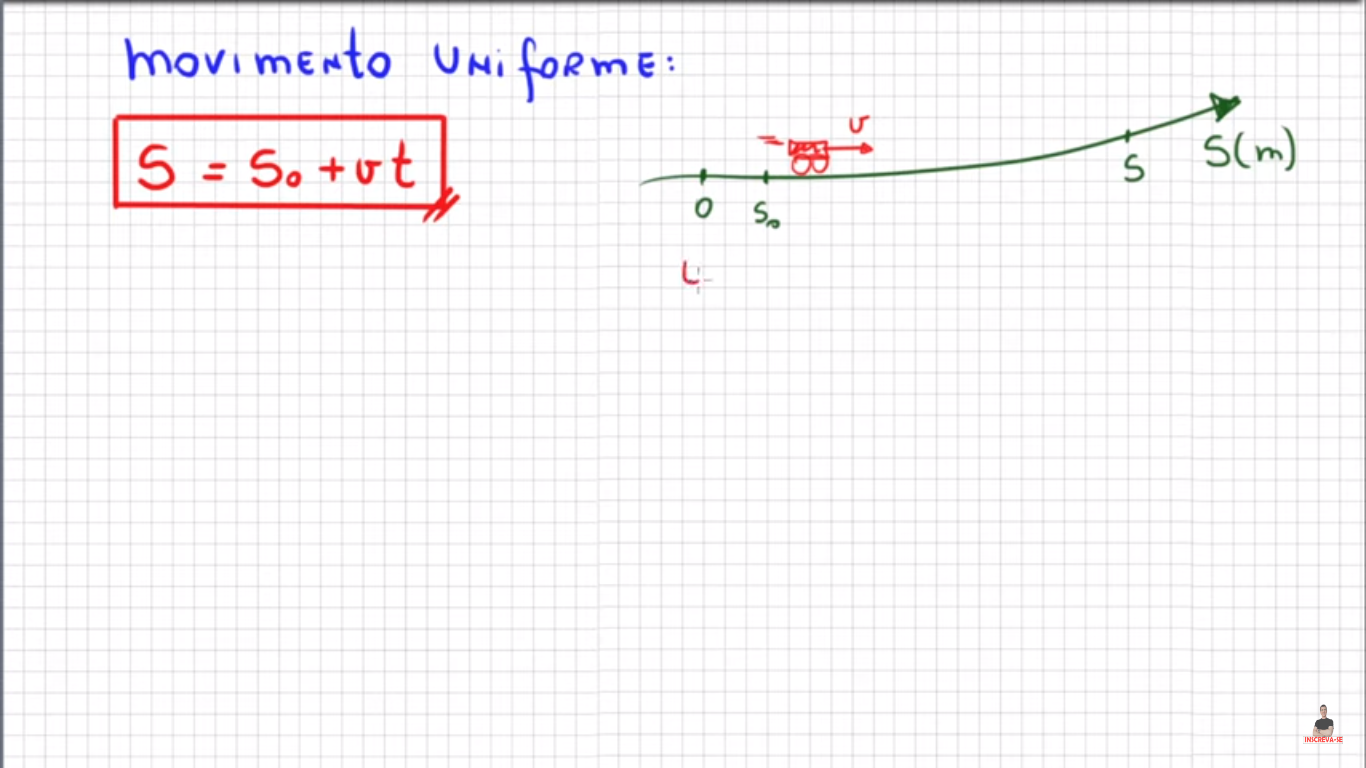 movimento uniforme:
S = S₀ + vt
v
0 S₀ S S(m)
INSCREVA-SE